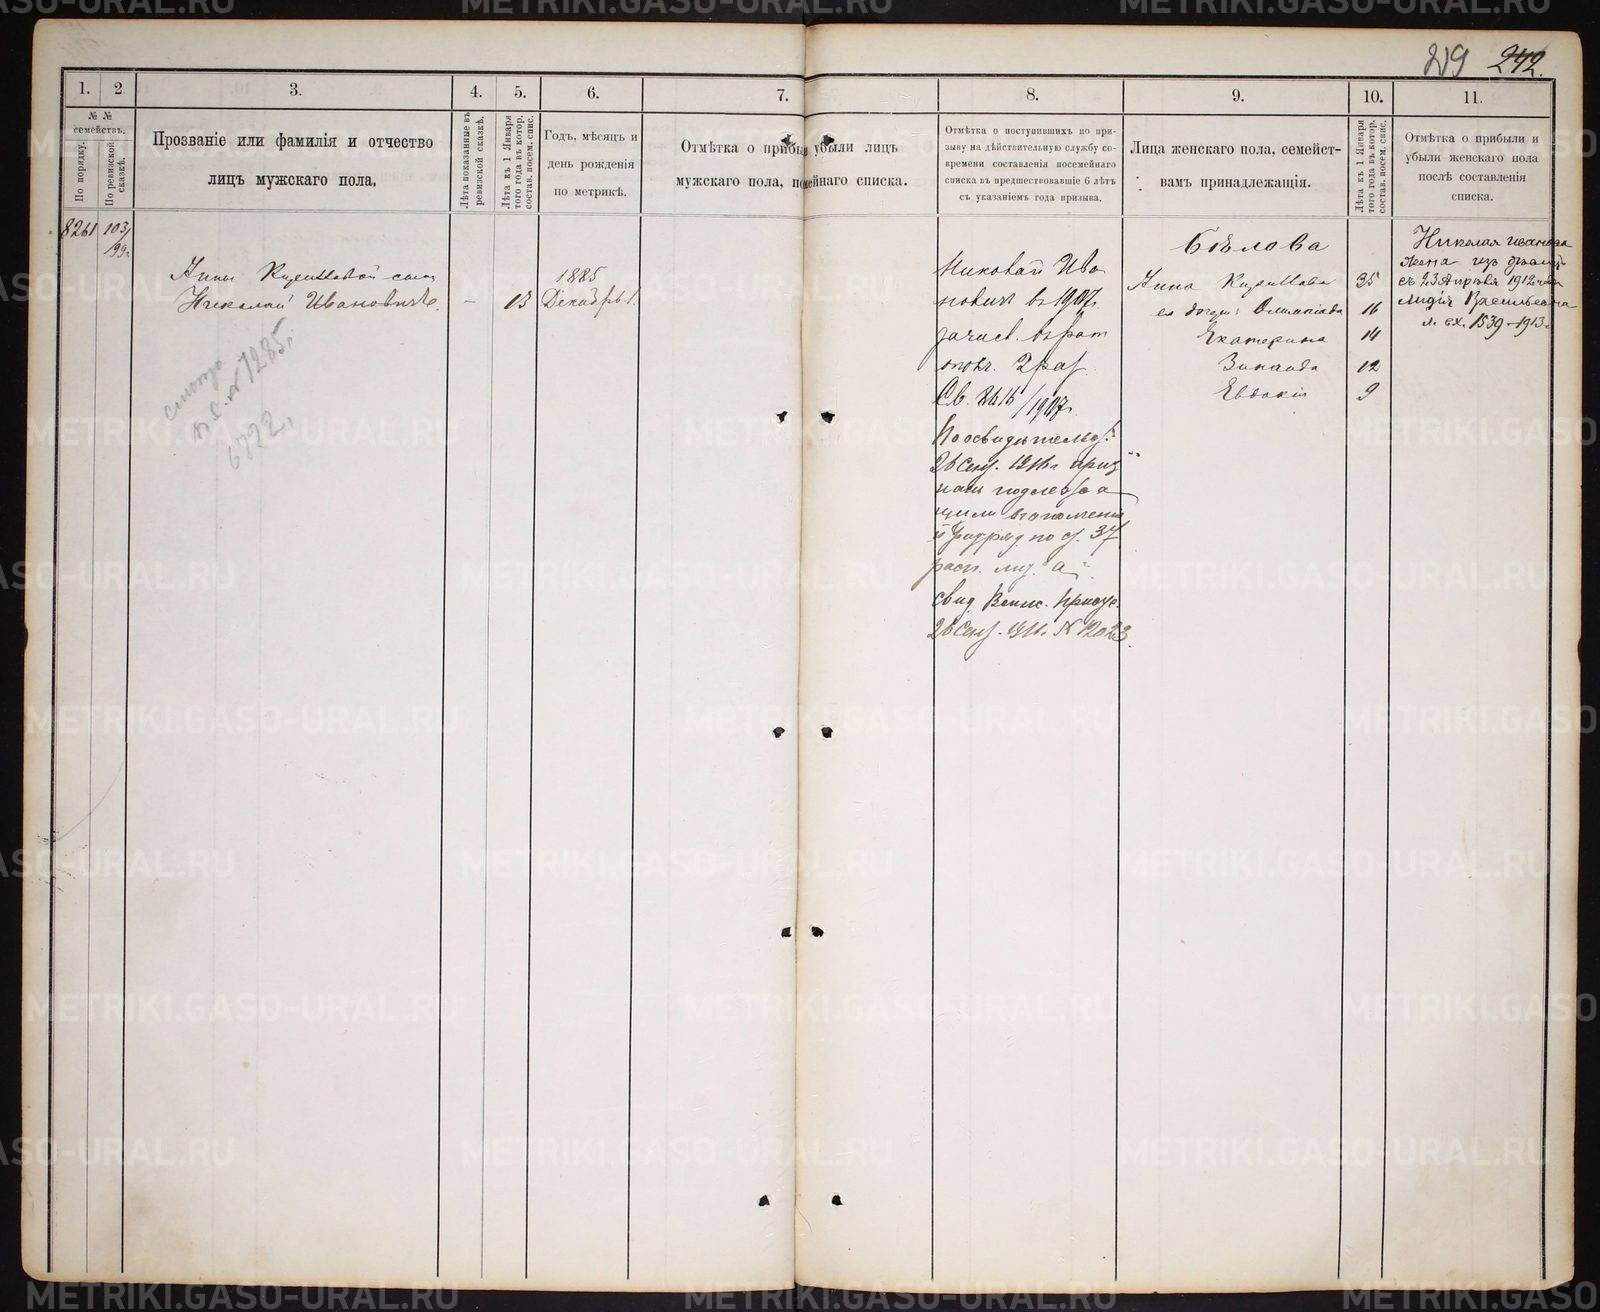 219 242.
1. 2 3. 4. 5. 6. 7. 8. 9. 10. 11.
№ №
семействъ.
По порядку.
По ревизской
сказкѣ.
Прозваніе или фамилія и отчество
лицъ мужскаго пола,
Лѣта показанные въ
ревизской сказкѣ.
Лѣта къ 1 Января
того года въ котор.
состав. посем. спис.
Годъ, мѣсяцъ и
день рожденія
по метрикѣ.
Отмѣтка о прибы убыли лицъ
мужскаго пола, по мейнаго списка.
Отмѣтка о поступившихъ по при-
зыву на дѣйствительную службу со-
времени составленія посемейнаго
списка въ предшествовавшіе 6 лѣтъ
съ указаніемъ года призыва.
Лица женскаго пола, семейст-
вамъ принадлежащія.
Лѣта къ 1 Января
того года въ котор.
состав. посем. спис.
Отмѣтка о прибыли и
убыли женскаго пола
послѣ составленія
списка.
8261 103/
199.
Анны сын
Николай Ивановичъ — 13
1885
Декабрь 1.
смотр
п. с. № 7285,
6722,
Николай Ива
новичъ въ 1907 г.
зачисл. въ рат
опол. 2 раз.
Св. 8616/1907 г.
По освидѣтельс.
26 Сен. 1916 г. приз
нан подлежа
щим
по с. 37
расп. лит. "а".
свид. Воинс. Присут.
26 Сен. 1916 г. № 12023.
Бѣлова
Анна 35
ея дочери: Олимпіада 16
Екатерина 14
Зинаида 12
Евдокія 9
Николая Иванова
жена изъ
съ 23 Апрѣля 1912 года
Лидія Васильевна
1539–1913 г.
METRIKI.GASO-URAL.RU